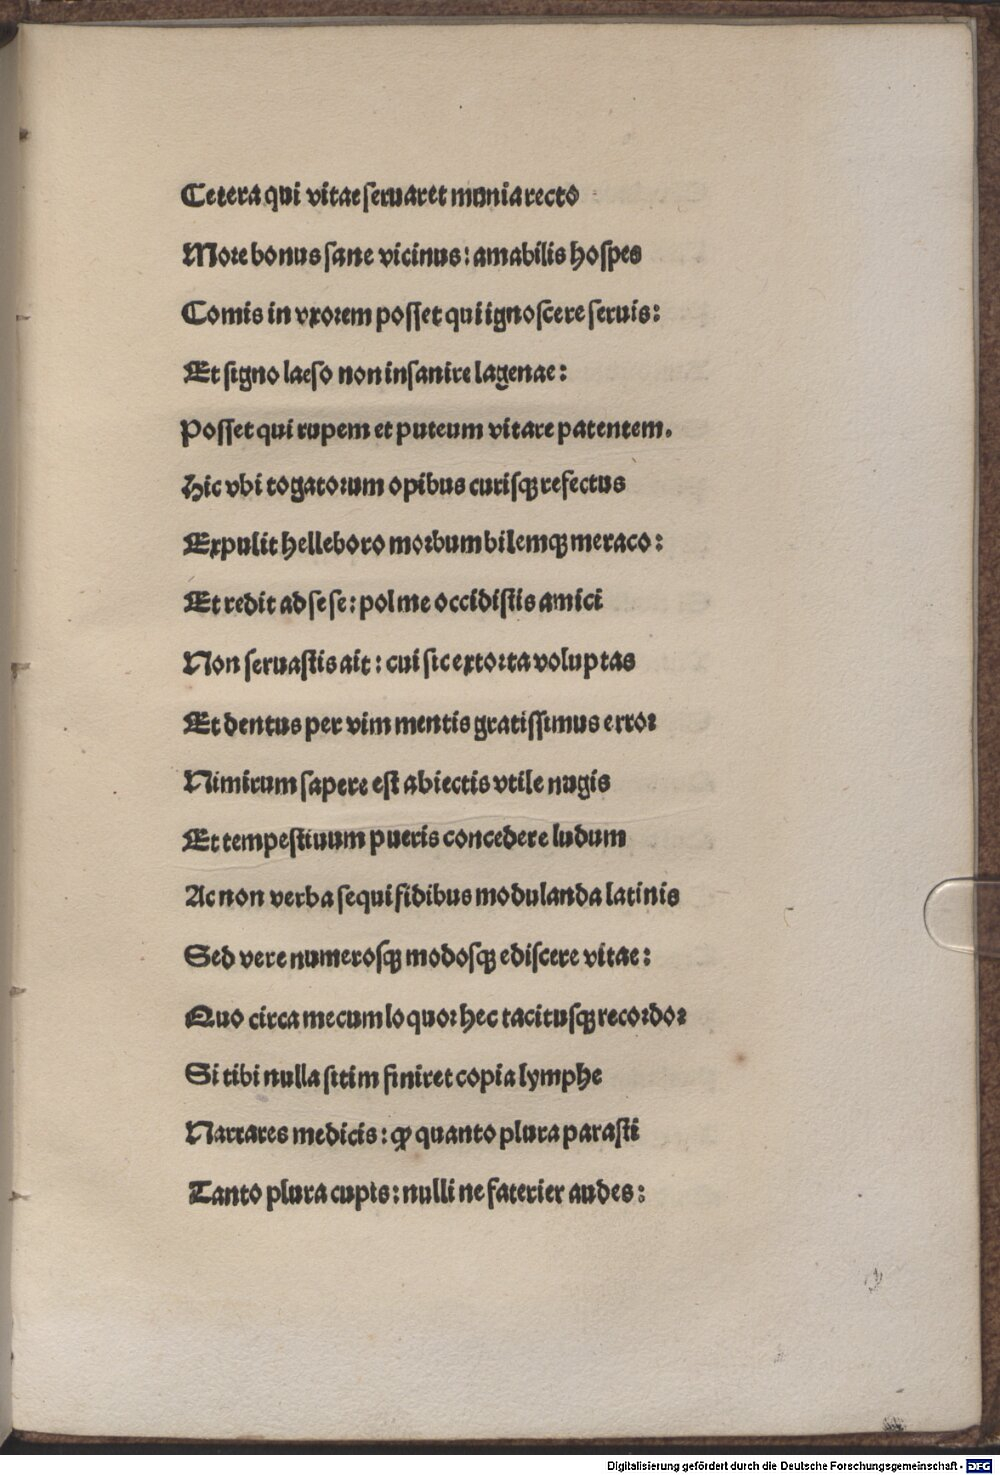 Cetera qui vitae seruaret munia recto
More bonus sane vicinus: amabilis hospes
Comis in vxorem posset qui ignoscere seruis:
Et signo laeso non insanire lagenae:
Posset qui rupem et puteum vitare patentem.
Hic vbi togatorum opibus curisqꝫ refectus
Expulit helleboro morbum bilemqꝫ meraco:
Et redit ad sese: pol me occidistis amici
Non seruastis ait: cui sic extorta voluptas
Et dentus per vim mentis gratissimus error
Nimirum sapere est abiectis vtile nugis
Et tempestiuum pueris concedere ludum
Ac non verba sequi fidibus modulanda latinis
Sed vere numerosqꝫ modosqꝫ ediscere vitae:
Quo circa mecum loquor hec tacitusqꝫ recordor
Si tibi nulla sitim finiret copia lymphe
Narrares medicis: ꝙ quanto plura parasti
Tanto plura cupis: nulli ne faterier audes:
Digitalisierung gefördert durch die Deutsche Forschungsgemeinschaft - DFG